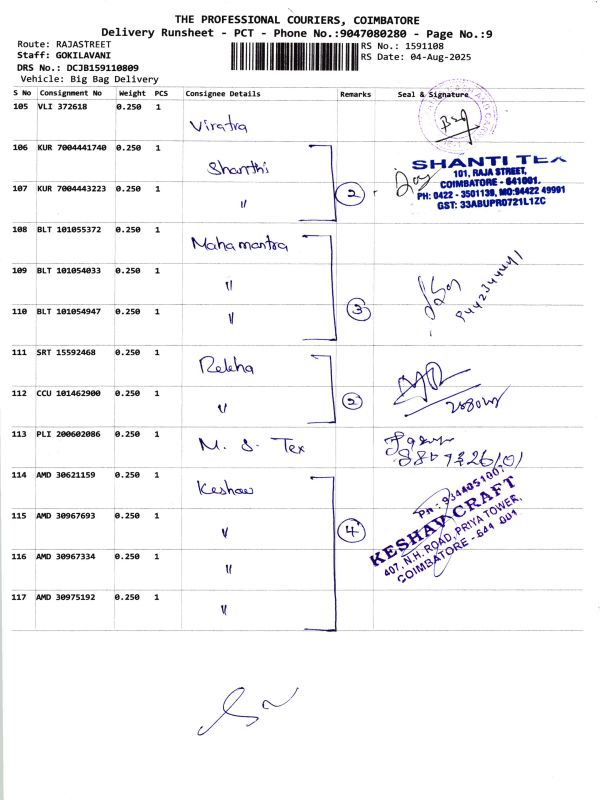 THE PROFESSIONAL COURIERS, COIMBATORE
Delivery Runsheet - PCT - Phone No.:9047080280 - Page No.:9
Route: RAJASTREET
Staff: GOKILAVANI
DRS No.: DCJB159110809
Vehicle: Big Bag Delivery
RS No.: 1591108
RS Date: 04-Aug-2025
S No Consignment No Weight PCS Consignee Details Remarks Seal & Signature
105 VLI 372618 0.250 1
Viratra
106 KUR 7004441740 0.250 1
Shanthi
107 KUR 7004443223 0.250 1
"
2
SHANTI TEX
101, RAJA STREET,
COIMBATORE - 641001.
PH: 0422 - 3501139, MO:94422 49991
GST: 33ABUPR0721L1ZC
108 BLT 101055372 0.250 1
Mahamantra
109 BLT 101054033 0.250 1
"
110 BLT 101054947 0.250 1
"
3
111 SRT 15592468 0.250 1
Rekha
112 CCU 101462900 0.250 1
"
2
113 PLI 200602086 0.250 1
M. S. Tex
114 AMD 30621159 0.250 1
Keshav
115 AMD 30967693 0.250 1
"
116 AMD 30967334 0.250 1
"
117 AMD 30975192 0.250 1
"
4
KESHAV CRAFT
407, N.H. ROAD, PRIYA TOWER,
COIMBATORE - 641 001